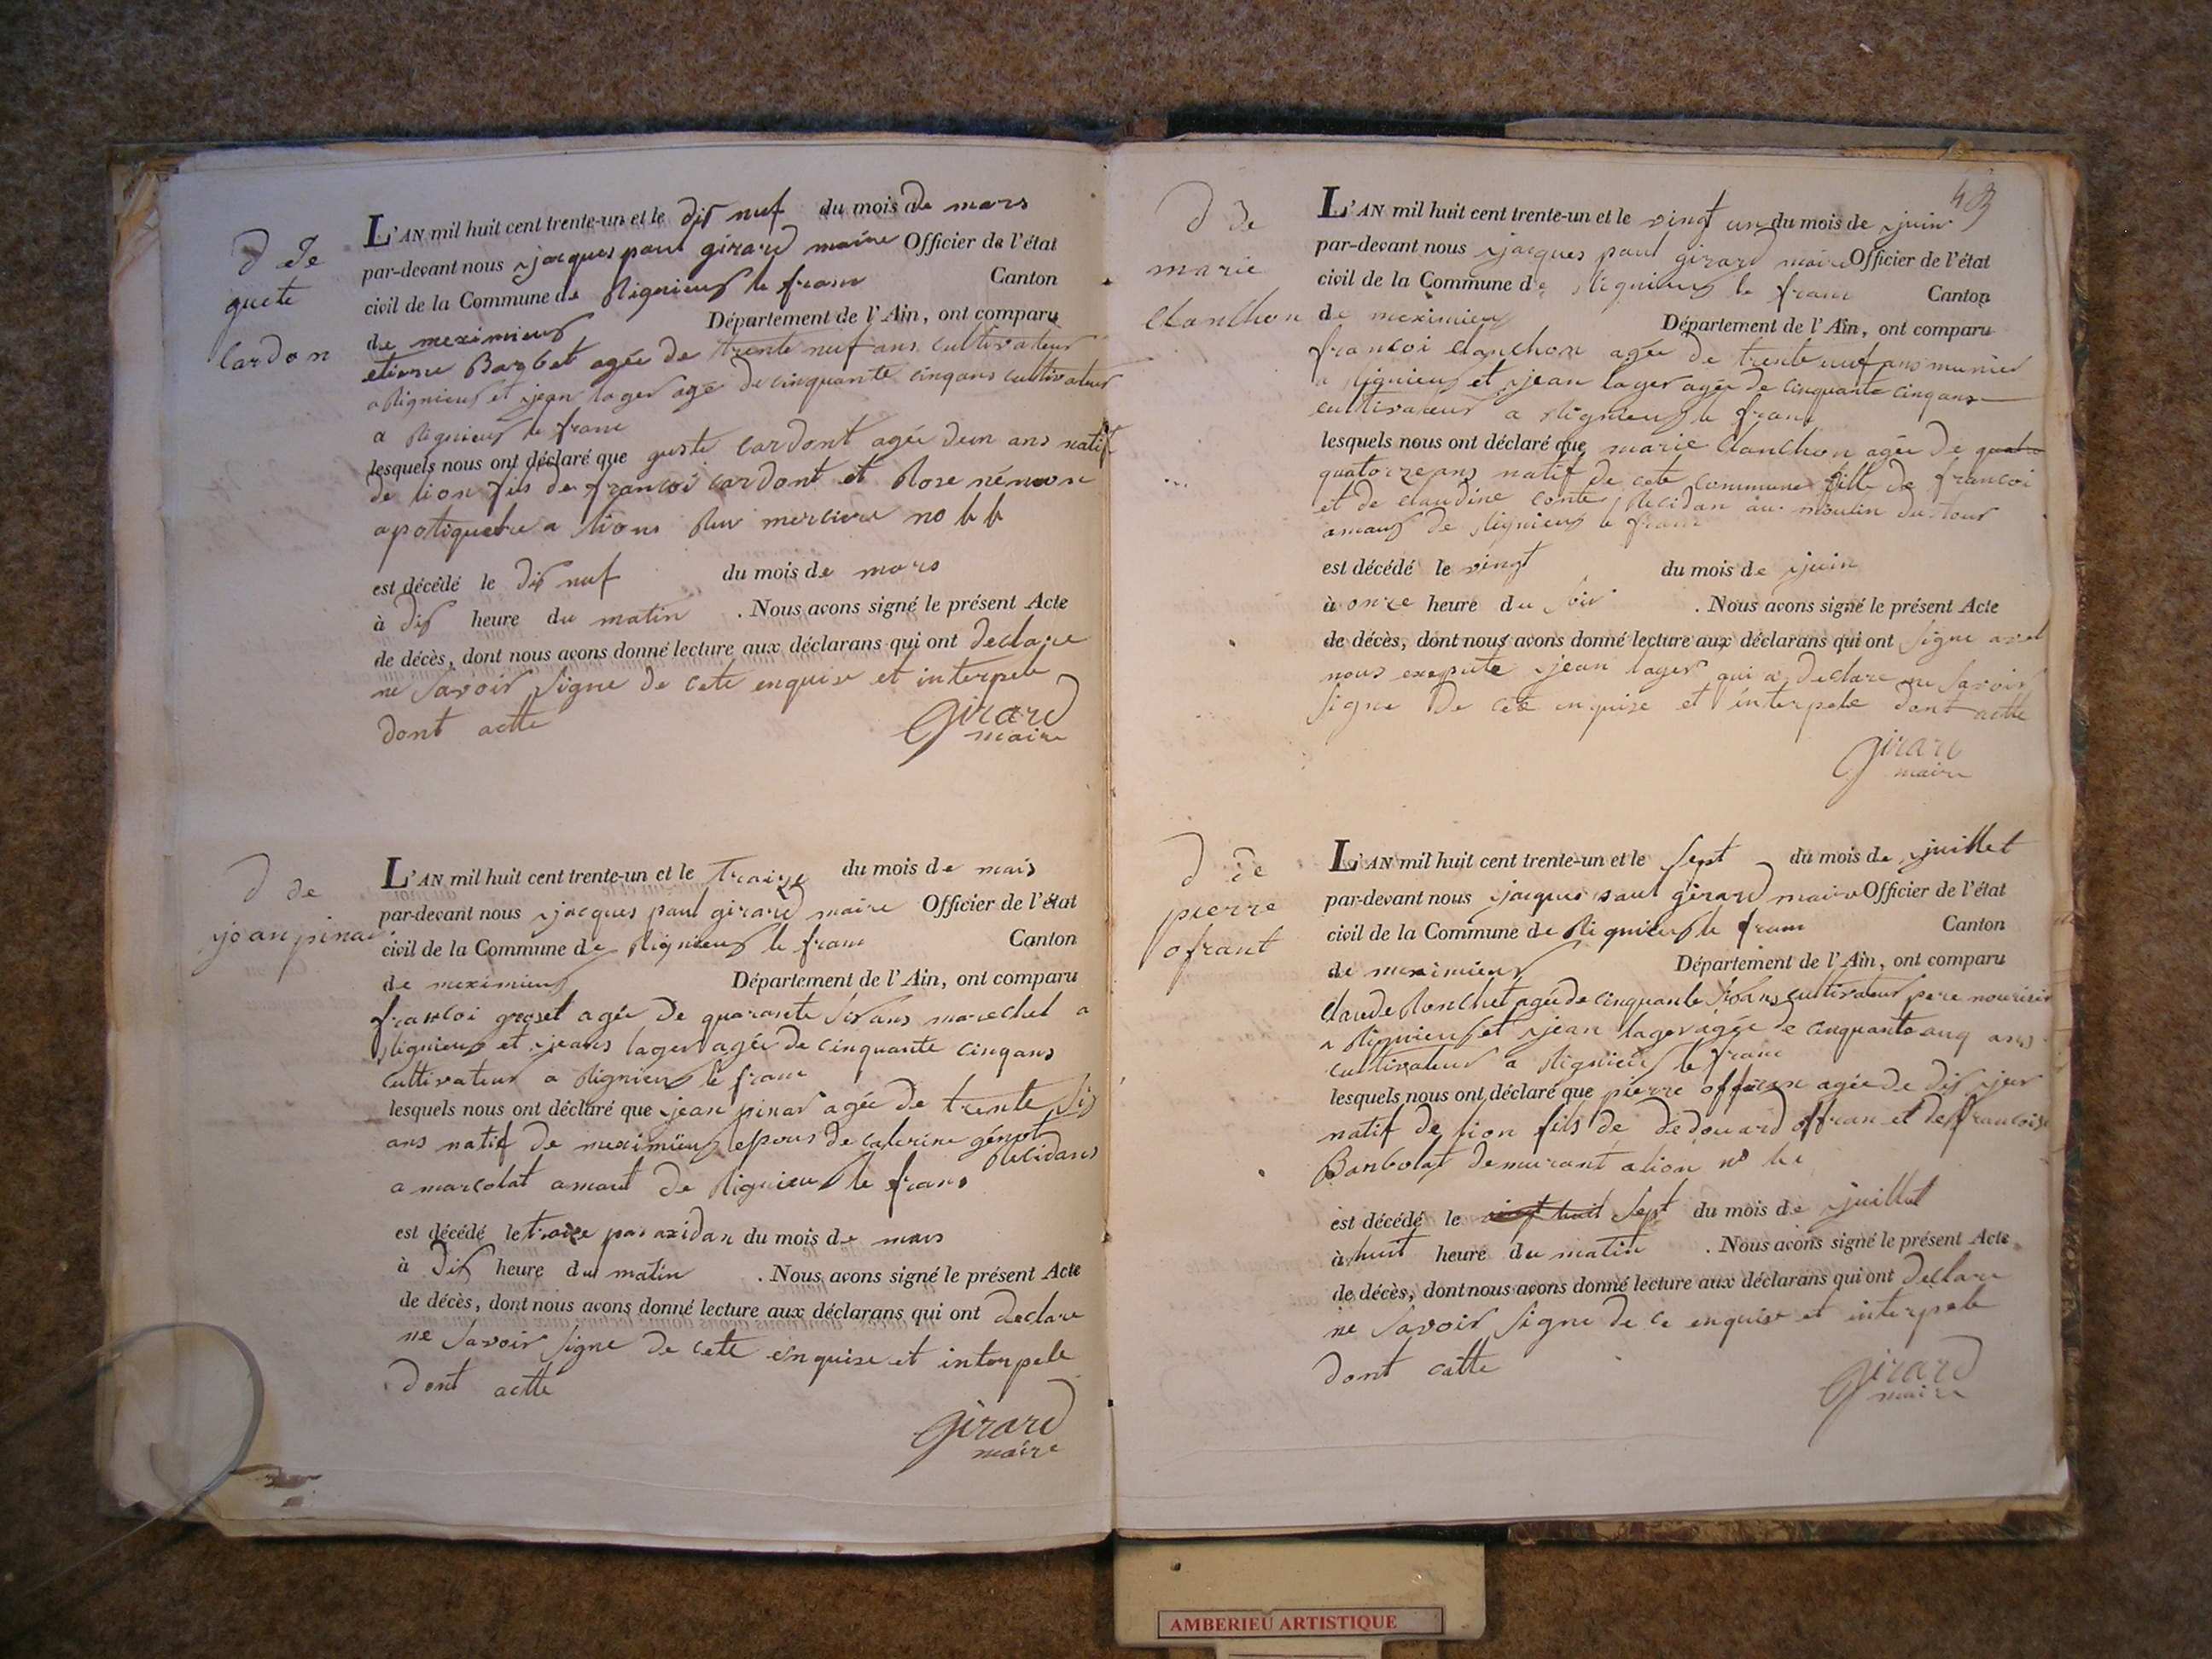 d de
guete
Cardon
L'AN mil huit cent trente-un et le dix nuf du mois de mars
par-devant nous jacques paul girard maire Officier de l'état
civil de la Commune de Rignieux le franc Canton
de meximieux Département de l'Ain, ont comparu
etiene Barbet agée de trente neuf ans cultivateur
a Rignieux et jean lager agé de cinquante cinq ans cultivateur
a Rignieux le franc
lesquels nous ont déclaré que guste cardont agée dun ans natif
de lion fils de francoi cardont et Rose
a lions Rue merciere no
est décédé le dix nuf du mois de mars
à dix heure du matin . Nous avons signé le présent Acte
de décès, dont nous avons donné lecture aux déclarans qui ont declare
ne savoir signe de cete enquise et interpele
dont actte
girard
maire
d de
joan pinar
L'AN mil huit cent trente-un et le traize du mois de mais
par-devant nous jacques paul girard maire Officier de l'état
civil de la Commune de Rignieux le franc Canton
de meximieux Département de l'Ain, ont comparu
francoi groset agée de quarante six ans marechel a
Rignieux et jeans lager agée de cinquante cinq ans
cultivateur a Rignieux le franc
lesquels nous ont déclaré que jean pinar agée de trente six
ans natif de meximieux epous de caterine génot Residans
a marcolat amaut de Rignieux le franc
est décédé le traize par axidan du mois de mais
à dix heure du matin . Nous avons signé le présent Acte
de décès, dont nous avons donné lecture aux déclarans qui ont declare
ne savoir signe de cete enquise et interpele
dont actte
girard
maire
43
d de
marie
Clanchon
L'AN mil huit cent trente-un et le vingt un du mois de juin
par-devant nous jacques paul girard maire Officier de l'état
civil de la Commune de Rignieux le franc Canton
de meximieux Département de l'Ain, ont comparu
francoi clanchon agée de trente neuf ans munier
a Rignieux et jean lager agée de cinquante cinq ans
cultivateur a Rignieux le franc
lesquels nous ont déclaré que marie clanchon agée de quatre
quatorze ans natif de cete commune fille de francoi
et de claudine conte Residan au moulin du tour
amaux de Rignieux le franc
est décédé le vingt du mois de juin
à onze heure du soir . Nous avons signé le présent Acte
de décès, dont nous avons donné lecture aux déclarans qui ont signe avel
nous exepute jean lager qui a declare ne savoir
signe De cete enquise et interpele dont actte
girard
maire
d de
pierre
ofrant
L'AN mil huit cent trente-un et le sept du mois de juillet
par-devant nous jacques paul girard maire Officier de l'état
civil de la Commune de Rignieux le franc Canton
de meximieux Département de l'Ain, ont comparu
claude Ronchet agée de cinquante trois ans cultivateur pere nourisier
a Rignieux et jean lager agée de cinquante cinq ans
cultivateur a Rignieux le franc
lesquels nous ont déclaré que pierre offran agée de dix jour
natif de lion fils de dedouard offran et de francoise
Banbolat demurant a lion no
est décédé le vingt huit sept du mois de juillet
à huit heure du matin . Nous avons signé le présent Acte
de décès, dont nous avons donné lecture aux déclarans qui ont declare
ne savoir signe de ce enquise et interpele
dont catte
girard
maire
AMBERIEU ARTISTIQUE